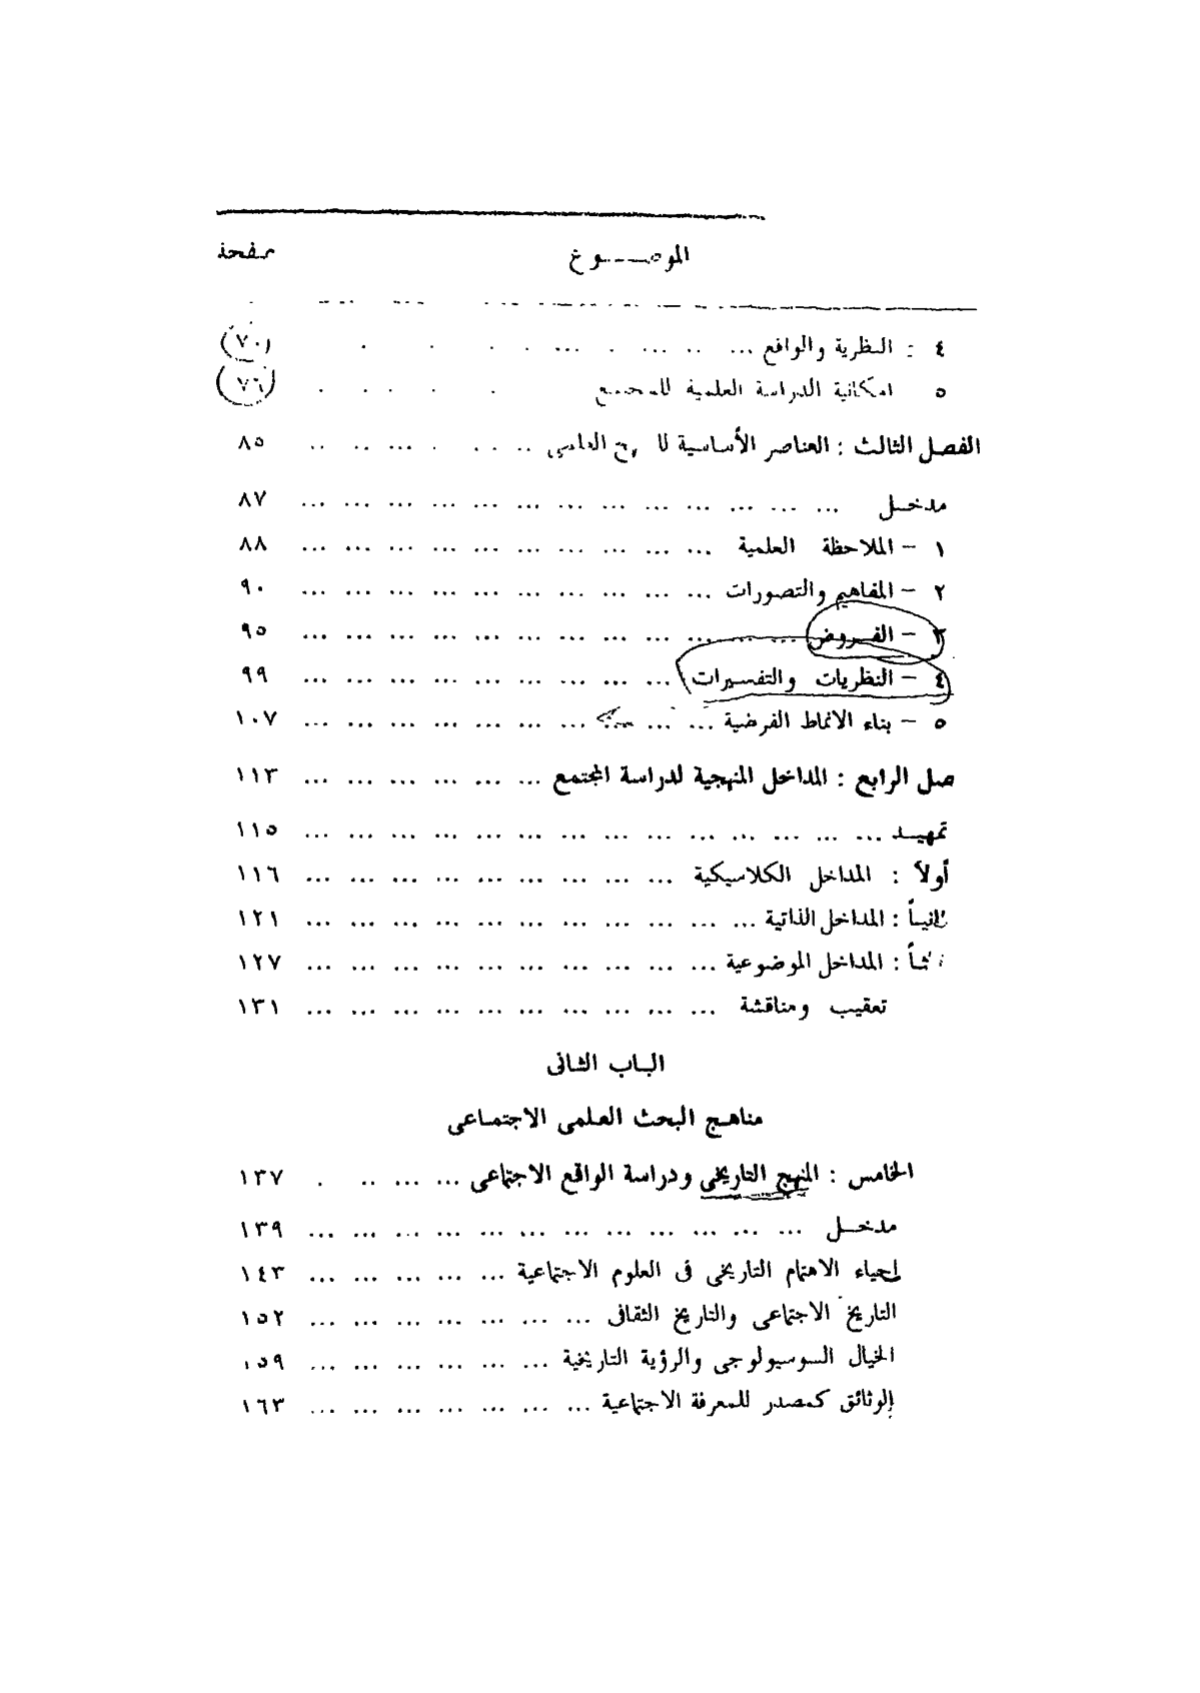 الموضـــوع صفحة
٤ : النظرية والواقع ... ٧٠
٥ امكانية الدراسة العلمية للمجتمع ٧٦
الفصل الثالث : العناصر الأساسية العلمى ... ٨٥
مدخـل ... ٨٧
١ – الملاحظة العلمية ... ٨٨
٢ – المفاهيم والتصورات ... ٩٠
٣ – الفـروض ... ٩٥
٤ – النظريات والتفسيرات ... ٩٩
٥ – بناء الانماط الفرضية ... ١٠٧
صل الرابع : المداخل المنهجية لدراسة المجتمع ... ١١٣
تمهيـد ... ١١٥
أولاً : المداخل الكلاسيكية ... ١١٦
ثانيـاً : المداخل الذاتية ... ١٢١
ثـاً : المداخل الموضوعية ... ١٢٧
تعقيب ومناقشة ... ١٣١
البـاب الثـانى
مناهـج البحث العـلمى الاجتمـاعى
الخامس : المنهج التاريخى ودراسة الواقع الاجتماعى ... ١٣٧
مدخـل ... ١٣٩
إحياء الاهتمام التاريخى فى العلوم الاجتماعية ... ١٤٣
التاريخ الاجتماعى والتاريخ الثقافى ... ١٥٢
الخيال السوسيولوجى والرؤية التاريخية ... ١٥٩
الوثائق كمصدر للمعرفة الاجتماعية ... ١٦٣